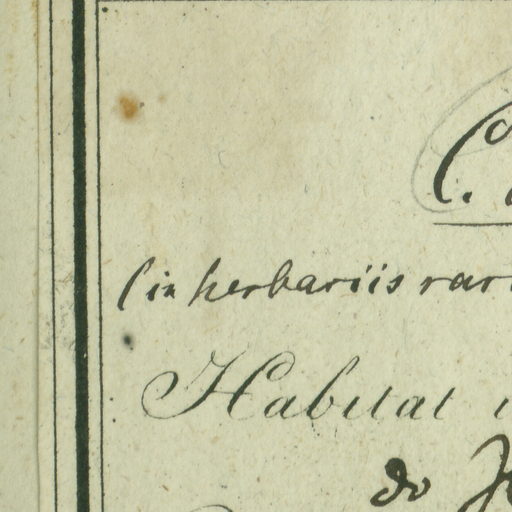 C.
(in herbariis rar
Habitat i
do